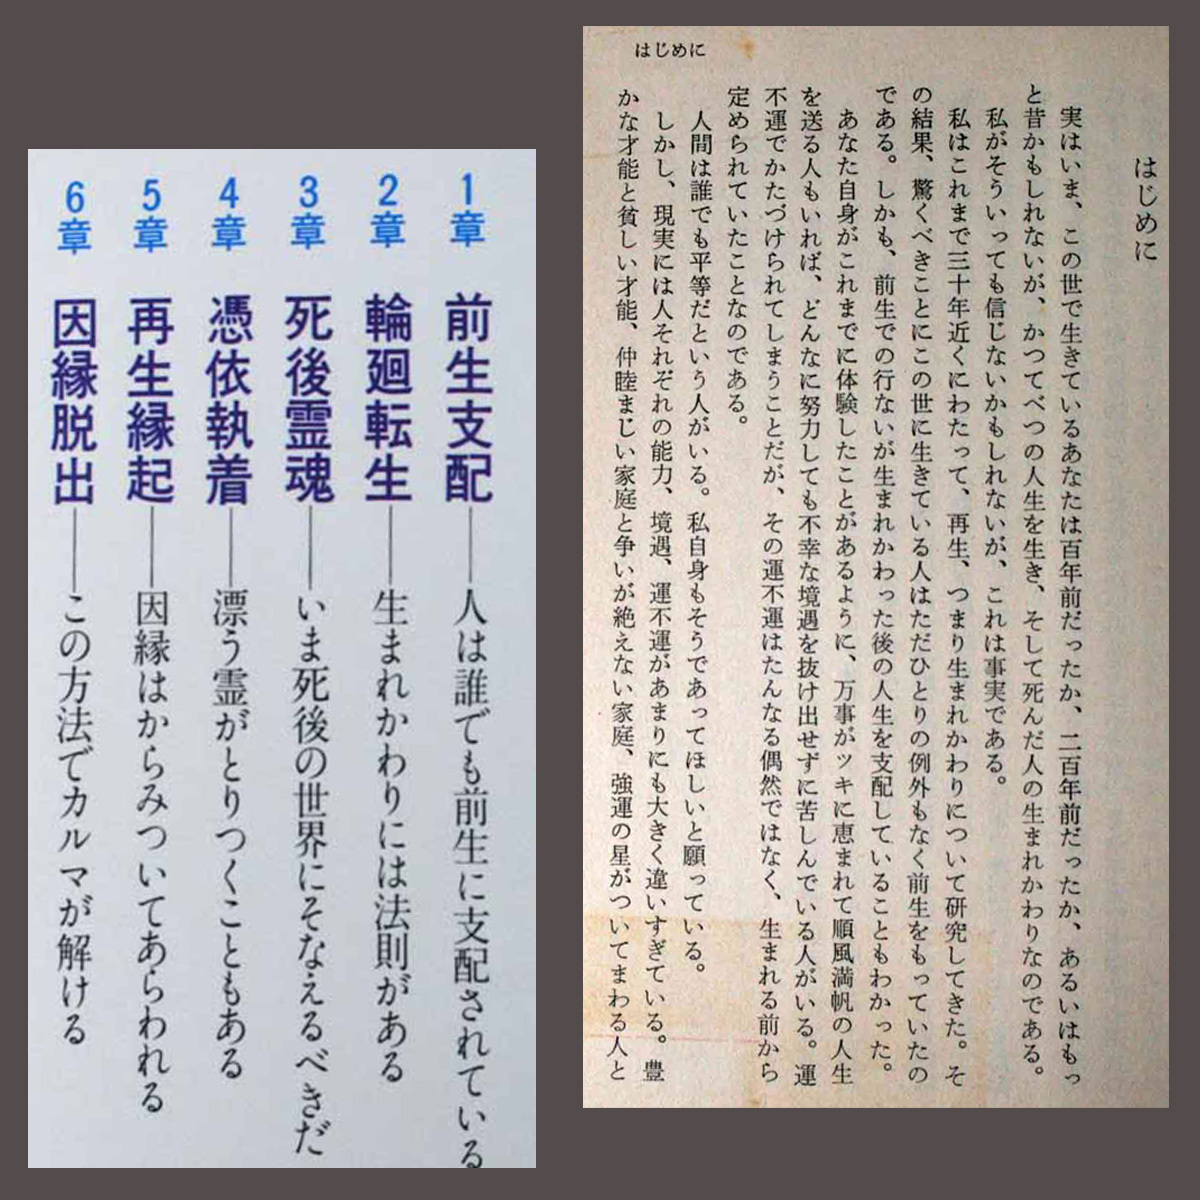 1章 前生支配──人は誰でも前生に支配されている
2章 輪廻転生──生まれかわりには法則がある
3章 死後霊魂──いま死後の世界にそなえるべきだ
4章 憑依執着──漂う霊がとりつくこともある
5章 再生縁起──因縁はからみついてあらわれる
6章 因縁脱出──この方法でカルマが解ける
はじめに
はじめに
実はいま、この世で生きているあなたは百年前だったか、二百年前だったか、あるいはもっ
と昔かもしれないが、かつてべつの人生を生き、そして死んだ人の生まれかわりなのである。
私がそういっても信じないかもしれないが、これは事実である。
私はこれまで三十年近くにわたって、再生、つまり生まれかわりについて研究してきた。そ
の結果、驚くべきことにこの世に生きている人はただひとりの例外もなく前生をもっていたの
である。しかも、前生での行ないが生まれかわった後の人生を支配していることもわかった。
あなた自身がこれまでに体験したことがあるように、万事がツキに恵まれて順風満帆の人生
を送る人もいれば、どんなに努力しても不幸な境遇を抜け出せずに苦しんでいる人がいる。運
不運でかたづけられてしまうことだが、その運不運はたんなる偶然ではなく、生まれる前から
定められていたことなのである。
人間は誰でも平等だという人がいる。私自身もそうであってほしいと願っている。
しかし、現実には人それぞれの能力、境遇、運不運があまりにも大きく違いすぎている。豊
かな才能と貧しい才能、仲睦まじい家庭と争いが絶えない家庭、強運の星がついてまわる人と